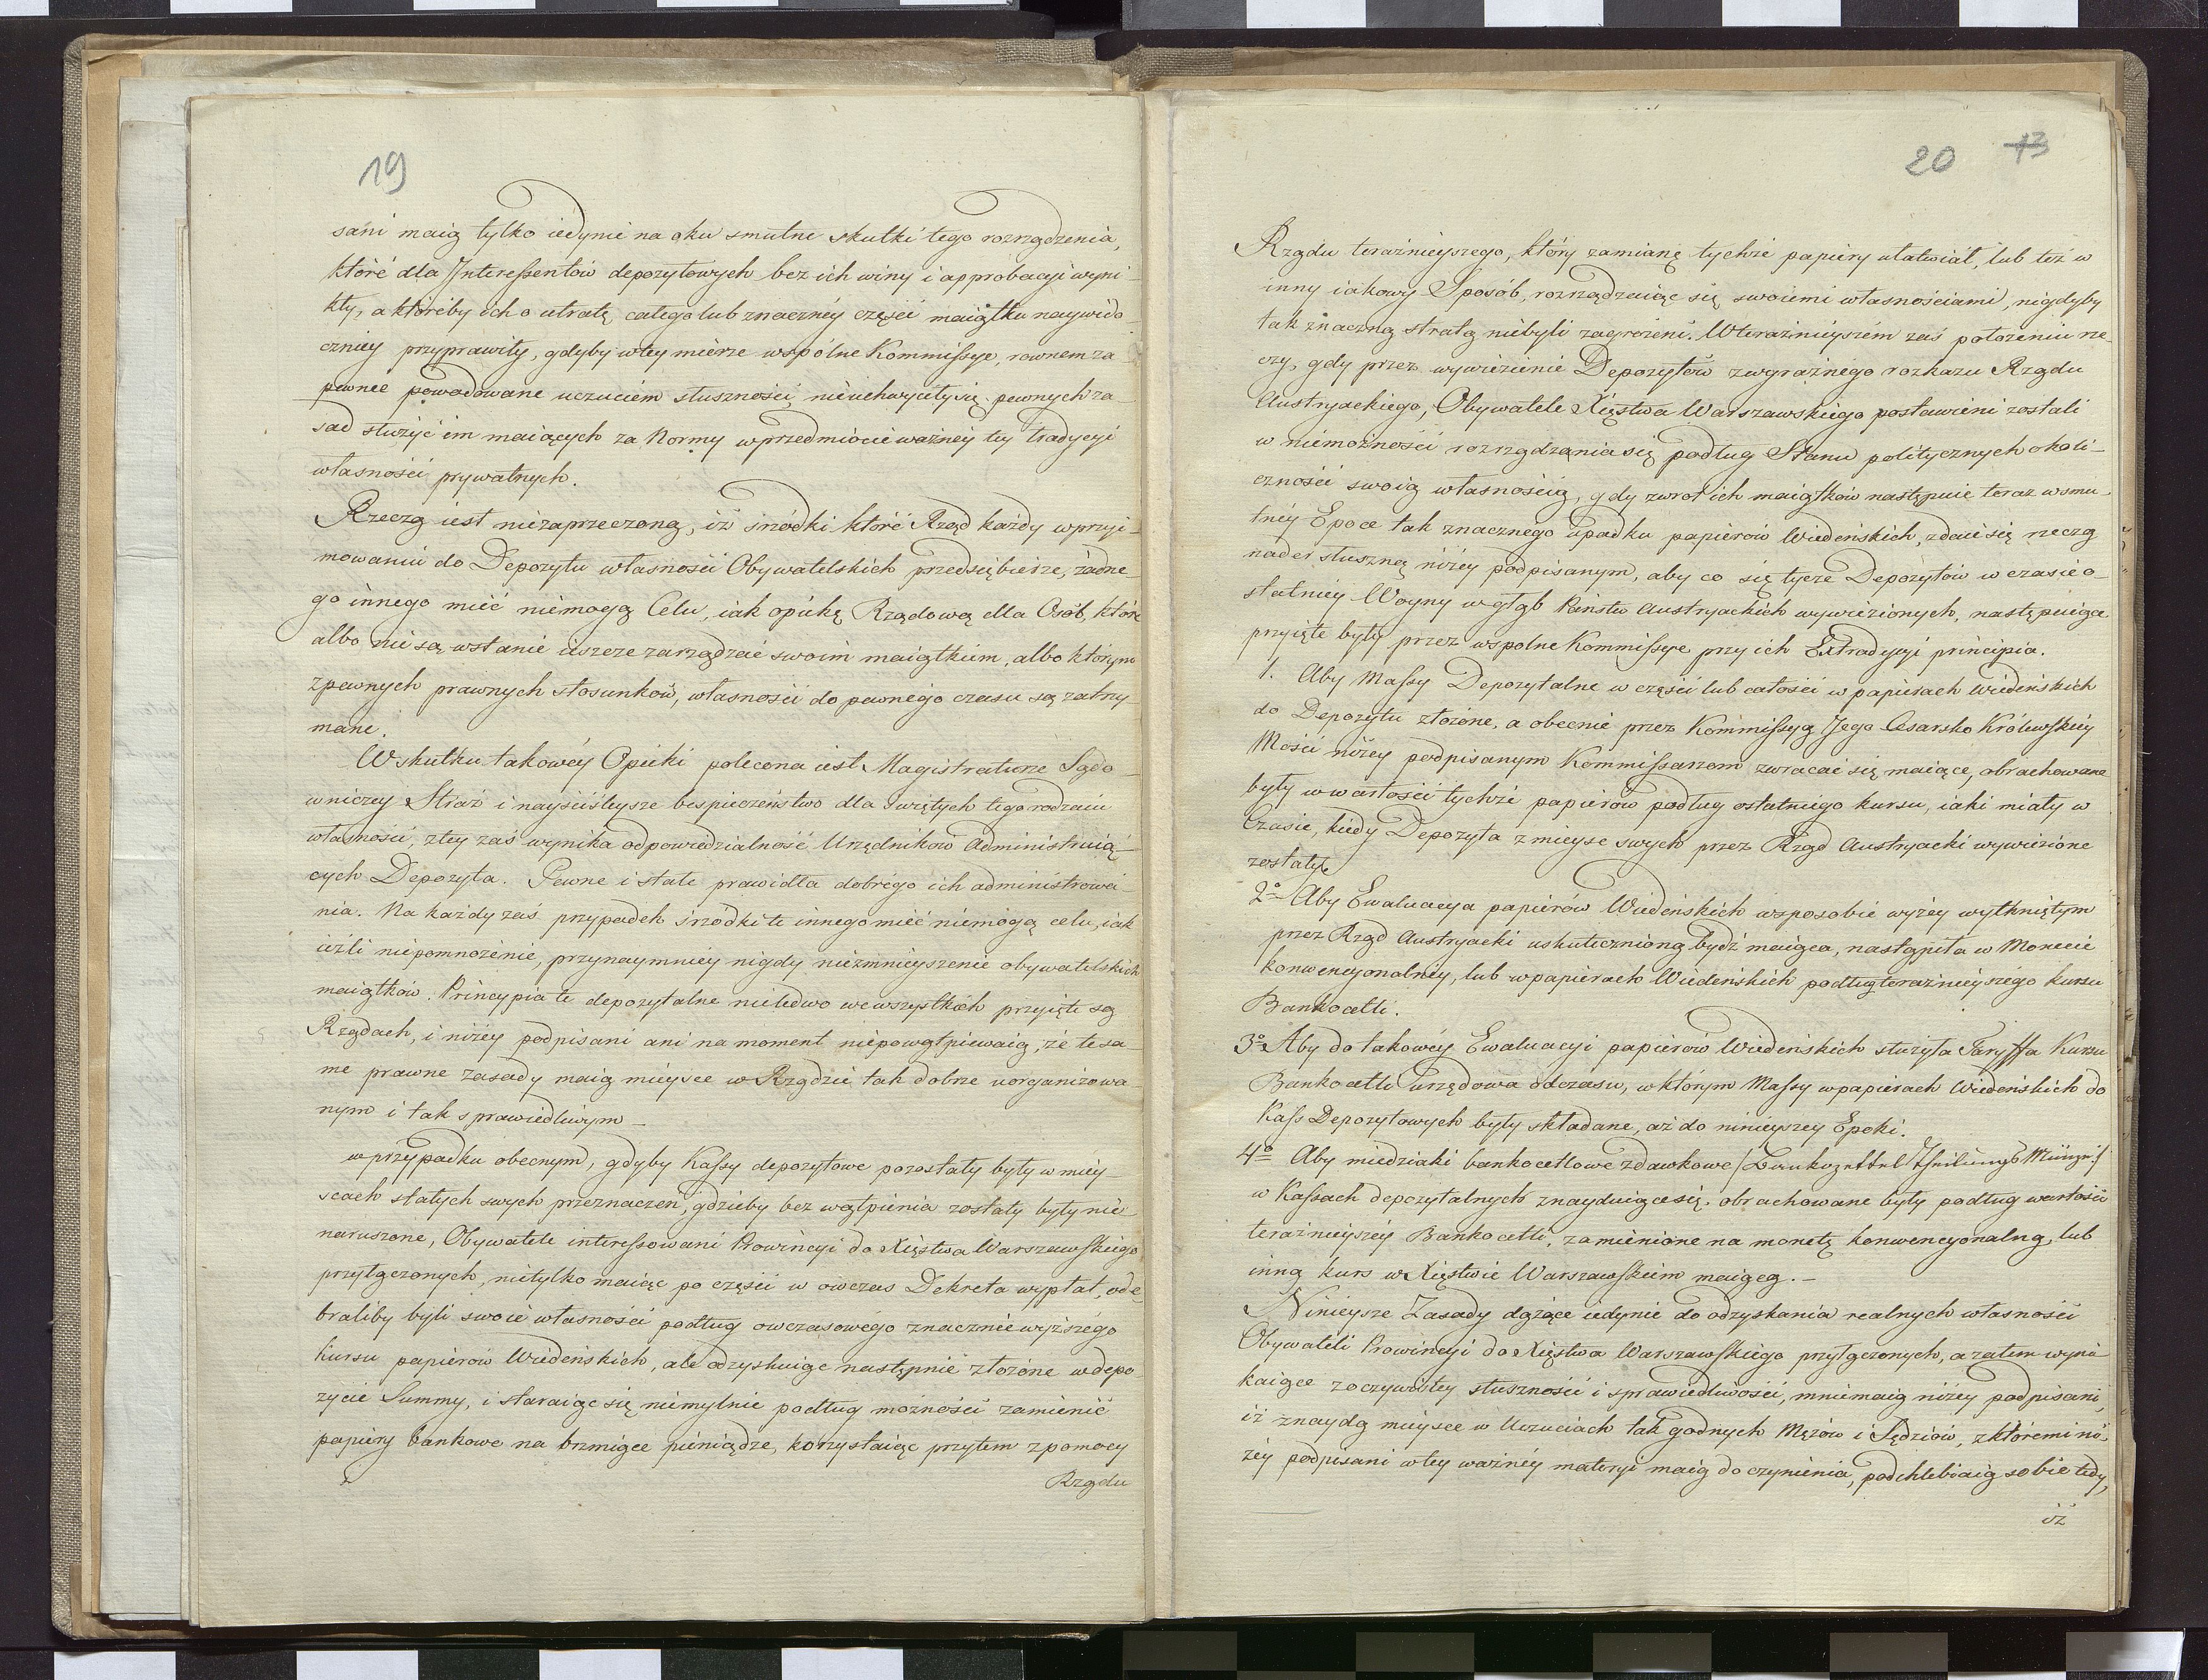 19
sani maią tylko iedynie na oku smutne skutki tego rozrządzenia,
które dla Interessentów depozytowych bez ich winy i approbacyi wyni-
kły, a któreby ich o utratę całego lub znaczney części maiątku naywido-
czniey przyprawiły, gdyby w tey mierze wspólne Kommissye, rownem za-
pewnee powodowane uczuciem słuszności, nieuchwyciły się pewnych za-
sad służyć im maiących za Normy w przedmiocie ważney tey tradycyi
własności prywatnych.
Rzeczą iest niezaprzeczoną, iż srzódki które Rząd każdy w przyi-
mowaniu do Depozytu własności Obywatelskich przedsiębierze, żadne-
go innego mieć niemogą Celu, iak opiekę Rządową dla Osób, które
albo nie są w stanie ieszcze zarządzać swoim maiątkiem, albo którym
z pewnych prawnych stosunków, własności do pewnego czasu są zatrzy-
mane.
W skutku takowéy Opieki polecona iest Magistraturze Sądo-
wniczey Straż i nayściśleysze bespieczeństwo dla świętych tego rodzaiu
własności, z tey zaś wynika odpowiedzialność Urzędników Administruią-
cych Depozyta. Pewne i stałe prawidła dobrego ich administrowa-
nia. Na każdy zaś przypadek srzódki te innego mieć niemogą celu, iak
ieżli niepomnożenie, przynaymniey nigdy niezmnieyszenie obywatelskich
maiątków. Principia te depozytalne nieledwo we wszystkich przyięte są
Rządach, i niżey podpisani ani na moment niepowątpiewaią, że te sa-
me prawne zasady maią mieysce w Rządzie tak dobrze uorganizowa-
nym i tak sprawiedliwym _
w przypadku obecnym, gdyby Kassy depozytowe pozostały były w miey-
scach stałych swych przeznaczeń, gdzieby bez wątpienia zostały były nie
naruszone, Obywatele interessowani Prowincyi do Xięstwa Warszawskiego
przyłączonych, nietylko maiąc po części w ówczas Dekreta wypłat, ode-
braliby byli swoie własności podług owczasowego znacznie wyższego
kursu papierów Wiedeńskich, ale odzyskuiąc następnie złożone w depo-
zycie Summy, i staraiąc się niemylnie podług możności zamienić
papiery bankowe na brzmiące pieniądze, korzystaiąc przytem z pomocy
Rządu
20 13
Rządu teraźnieyszego, który zamianę tychże papiery ułatwiał, lub też w
inny iakowy Sposób, rozrządzaiąc się swoiemi własnościami, nigdyby
tak znaczną stratą niebyli zagrożeni. W teraźnieyszém zaś położeniu rze-
czy, gdy przez wywiezienie Depozytów z wyraźnego rozkazu Rządu
Austryackiego, Obywatele Xięstwa Warszawskiego postawieni zostali
w niemożności rozrządzania się podług Stanu politycznych okoli-
czności swoią własnością, gdy zwrot ich maiątków następuie teraz w smu-
tnéy Epoce tak znacznego upadku papierów Wiedeńskich, zdaie się rzeczą
nader słuszną niżéy podpisanym, aby co się tycze Depozytów w czasie o-
statniey Woyny w głąb Państw Austryackich wywiezionych, następuiące
przyięte były przez wspolne Kommissye przy ich Extradycyi principia.
1. Aby Massy Depozytalne w części lub całości w papierach Wiedeńskich
do Depozytu złożone, a obecnie przez Kommissyą Jego Cesarsko Królewskiey
Mości niżey podpisanym Kommissarzom zwracać się maiące, obrachowane
były w wartości tychże papierów podług ostatniego kursu, iaki miały w
Czasie, kiedy Depozyta z mieysc swych przez Rząd Austryacki wywiezione
zostały.
2o Aby Ewaluacya papierów Wiedeńskich w sposobie wyżey wytkniętym
przez Rząd Austryacki uskutecznioną bydź maiąca, nastąpiła w Monecie
konwencyonalney, lub w papierach Wiedeńskich podług teraźnieyszego kursu
Bankocetli.
3o Aby do takowéy Ewaluacyi papierów Wiedeńskich służyła Taryffa Kursu
Bankocetli urzędowa od czasu, w którym Massy w papierach Wiedeńskich do
Kass Depozytowych były składane, aż do ninieyszey Epoki.
4o Aby miedziaki bankocetlowe zdawkowe /:Bankozettel Theilungs Münze:/
w Kassach depozytalnych znayduiące się, obrachowane były podług wartości
teraźnieyszéy Bankocetli, zamienione na monetę konwencyonalną, lub
inną kurs w Xięstwie Warszawskiem maiącą. _
Ninieysze Zasady dążące iedynie do odzyskania realnych własności
Obywateli Prowincyi do Xięstwa Warszawskiego przyłączonych, a zatem wyni-
kaiące z oczywistey słuszności i sprawiedliwości, mniemaią niżey podpisani,
iż znaydą mieysce w Uczuciach tak godnych Mężów i Sędziów, z któremi ni-
żéy podpisani w tey ważnéy materyi maią do czynienia, podchlebiaią sobie tedy,
iż